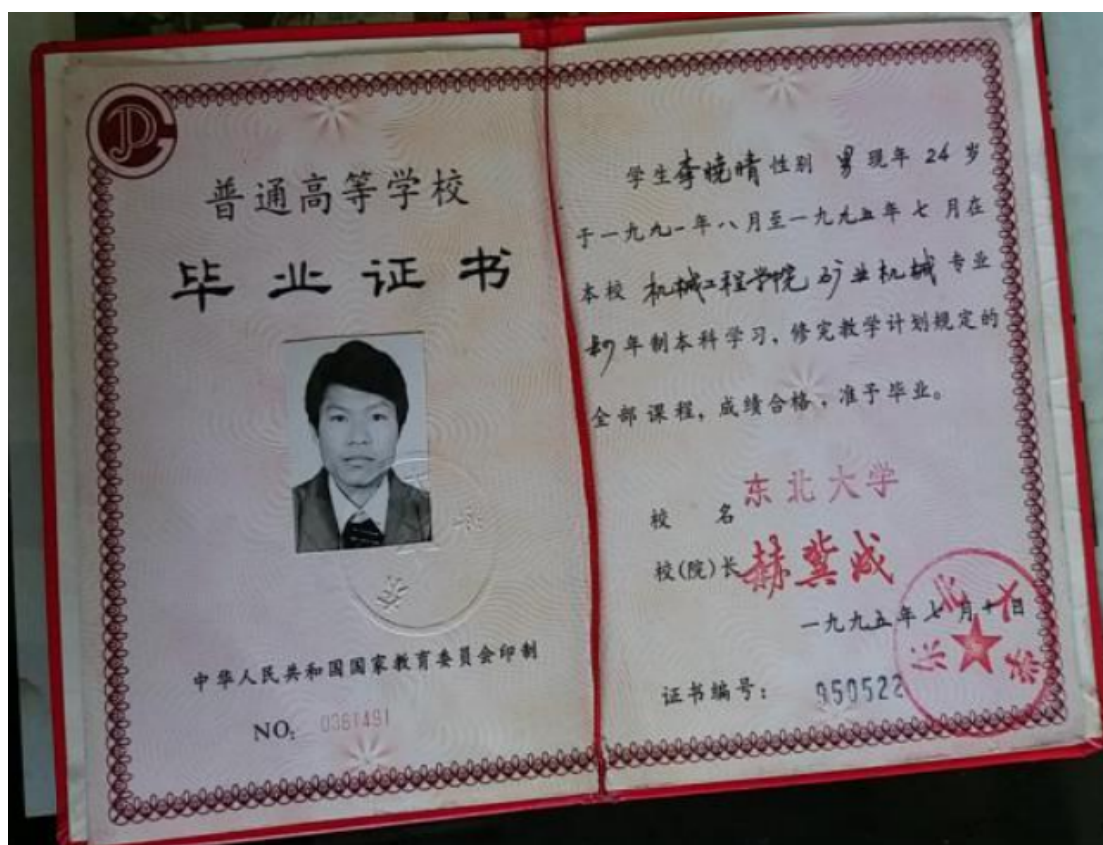 普通高等学校
毕业证书
中华人民共和国国家教育委员会印制
NO: 0361491
学生李晓晴性别 男 现年 24 岁
于一九九一年八月至一九九五年七月在
本校 机械工程学院矿业机械 专业
四年制本科学习，修完教学计划规定的
全部课程，成绩合格，准予毕业。
校 名 东北大学
校(院)长 赫冀成
一九九五年七月十日
证书编号： 950522
东北大学